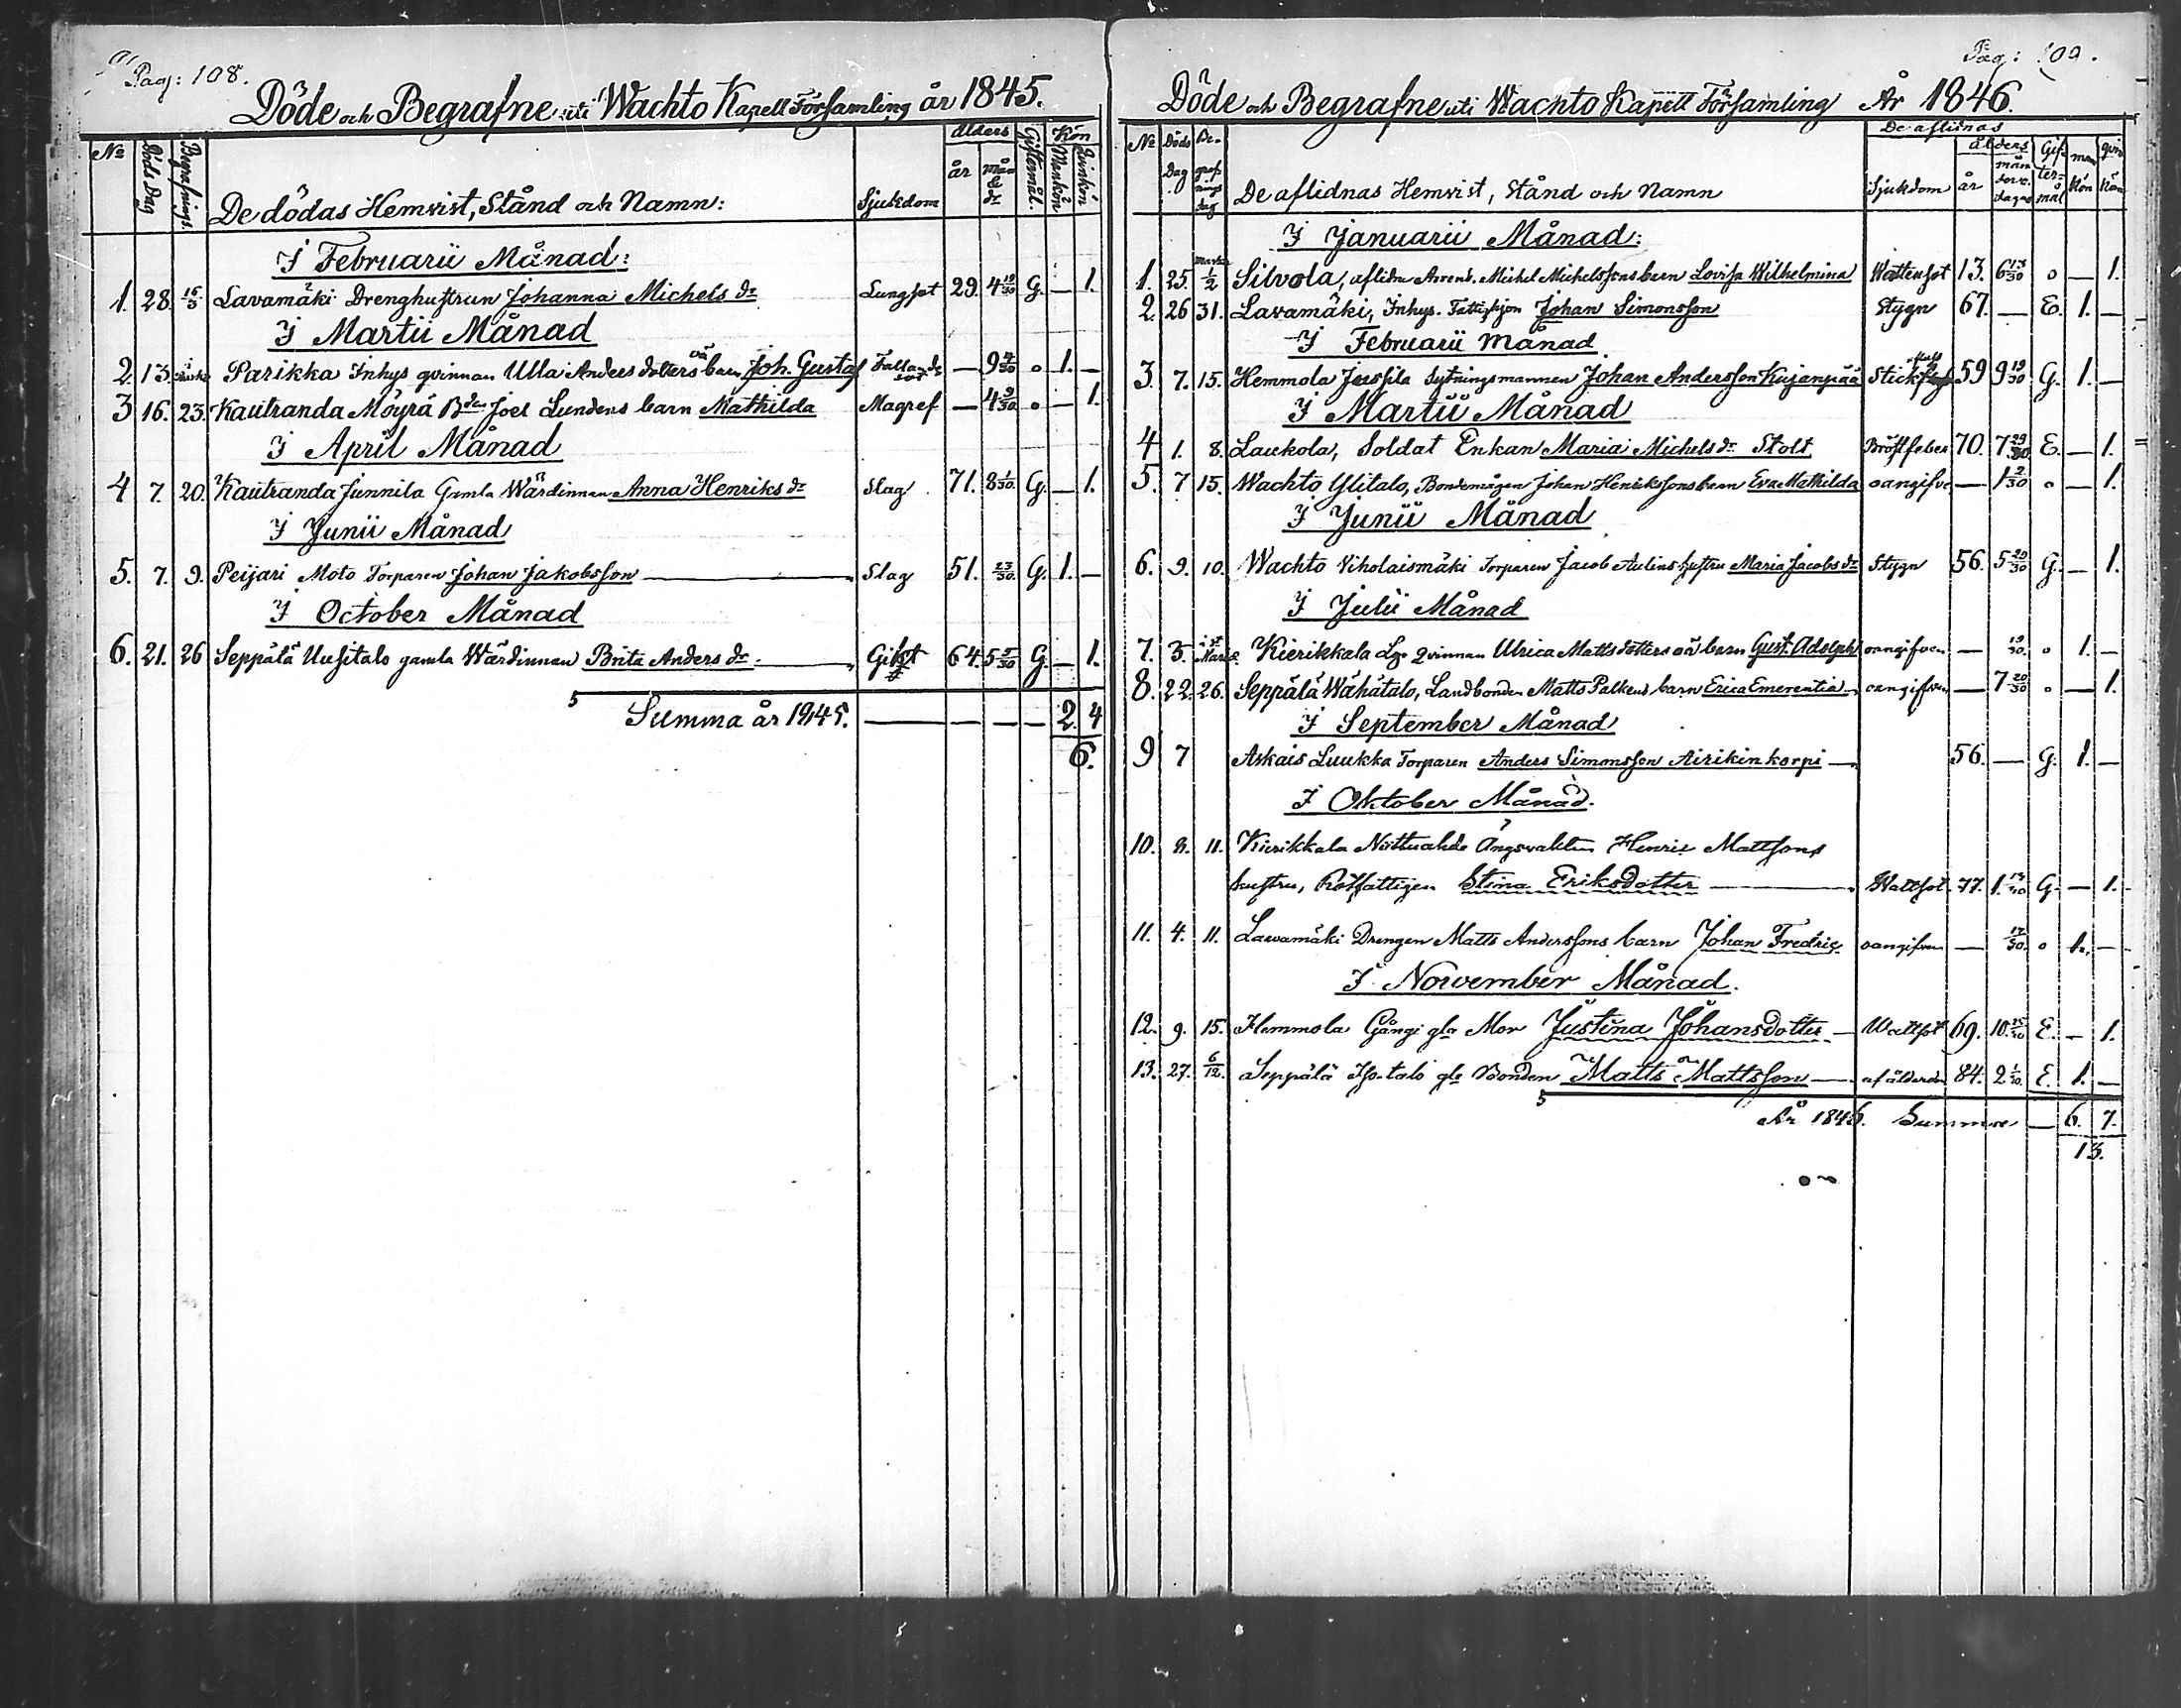 Pag: 108.
Döde och Begrafne uti Wachto Kapell Församling år 1845.
№ Döds Dag Begrafnings. De dödas Hemvist, Stånd och Namn: Sjukdom ålders år mån & dr Giftermål. Kön Mankön Qvinkön
I Februarii Månad:
1. 28. 16/3 Lavamäki Drenghustrun Johanna Michels dr Lungsot 29. 4 19/30 G. — 1.
I Martii Månad
2. 13. Parikka Inhys qvinnan Ulla Anders dotters oä barn Joh. Gustaf Fallandesot — 9 4/30 o 1. —
3 16. 23. Kautranda Möyrä Bden Joel Lundens barn Mathilda Magref — 4 9/30 o — 1.
I April Månad
4 7. 20. Kautranda Junnila Gamla Wärdinnan Anna Henriks dr Slag 71. 8 1/30. G. — 1.
I Junii Månad
5. 7. 9. Peijari Moto Torparen Johan Jakobsson — Slag 51. 23/30. G. 1. —
I October Månad
6. 21. 26 Seppälä Uusitalo gamla Wärdinnan Brita Anders dr. — Gikt 64. 5 5/30 G. — 1.
Summa år 1845. — — — — 2. 4
6.
Pag: 109.
Döde och Begrafne uti Wachto Kapell Församling År 1846.
№ Döds Dag Begrafnings dag De aflidnas Hemvist, Stånd och Namn De aflidnas Sjukdom ålders år mån Gifter-mål man Kön qvin Kön
I Januarii Månad:
1. 25. 1/2 Silvola, aflidne Arrend. Michel Michelssons barn Lovisa Wilhelmina Wattusot 13. 6 13/30 o — 1.
2. 26 31. Lavamäki, Inhys. Fattighjon Johan Simonsson Stygn 67. — E. 1. —
I Februarii Månad
3. 7. 15. Hemmola Jussila Sytningsmannen Johan Andersson Kujanpää Stick 59 9 19/30 G. 1. —
I Martii Månad
4 1. 8. Laukola, Soldat Enkan Maria Michels dr Stolt Bröstfeber 70. 7 29/30 E. — 1.
5. 7 15. Wachto Ylitalo, Bondemågen Johan Henrikssons barn Eva Mathilda oangifve — 1 2/30 o — 1.
I Junii Månad
6. 9. 10. Wachto Nikolaismäki Torparen Jacob Aulins hustru Maria Jacobs dr Stygn 56. 5 20/30 G. — 1.
I Julii Månad
7. 3. Kierikkala Qvinnan Ulrica Matts dotters oä barn Gust. Adolph oangifven — 19/30. o 1. —
8. 22. 26. Seppälä Wähätalo, Landbonden Matts Palkens barn Erica Emerentia oangifven — 7 20/30 o — 1.
I September Månad
9 7 Askais Luukka Torparen Anders Simonsson Airikinkorpi — 56. — G. 1. —
I Oktober Månad.
10. 8. 11. Kierikkala Ängsvakten Henric Mattsons
hustru, Rotfattigen Stina Eriksdotter — Wattsot 77. 1. G. — 1.
11. 4. 11. Lawamäki Drengen Matts Anderssons barn Johan Fredric oangifven — 17/30. o 1. —
I November Månad.
12. 9. 15. Hemmola Gångi gla Mor Justina Johansdotter — Wattsot 69. 10. E. — 1.
13. 27. 6/12. Seppälä Isotalo gle Bonden Matts Mattsson — af ålderdom 84. 2 1/30. E. 1. —
År 1846. Summa — 6. 7.
13.